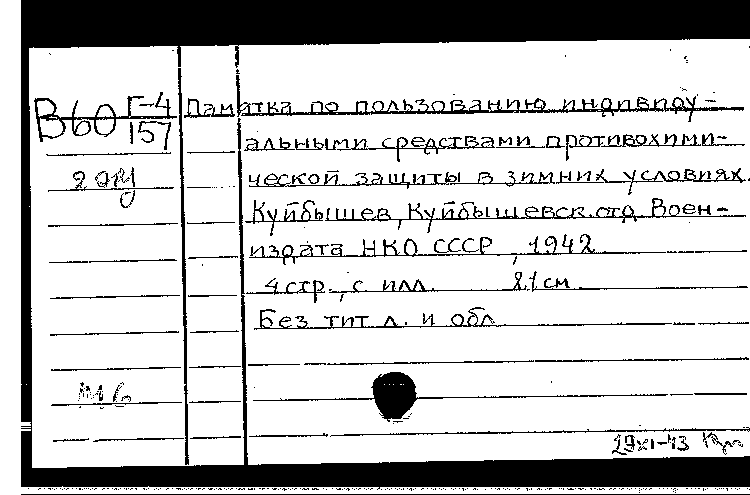 В60 Г-4/157
Памятка по пользованию индивиду-
альными средствами противохими-
ческой защиты в зимних условиях.
Куйбышев, Куйбышевск. отд. Воен-
издата НКО СССР, 1942
4 стр., с илл. 21 см
Без тит л. и обл
29 XI-43